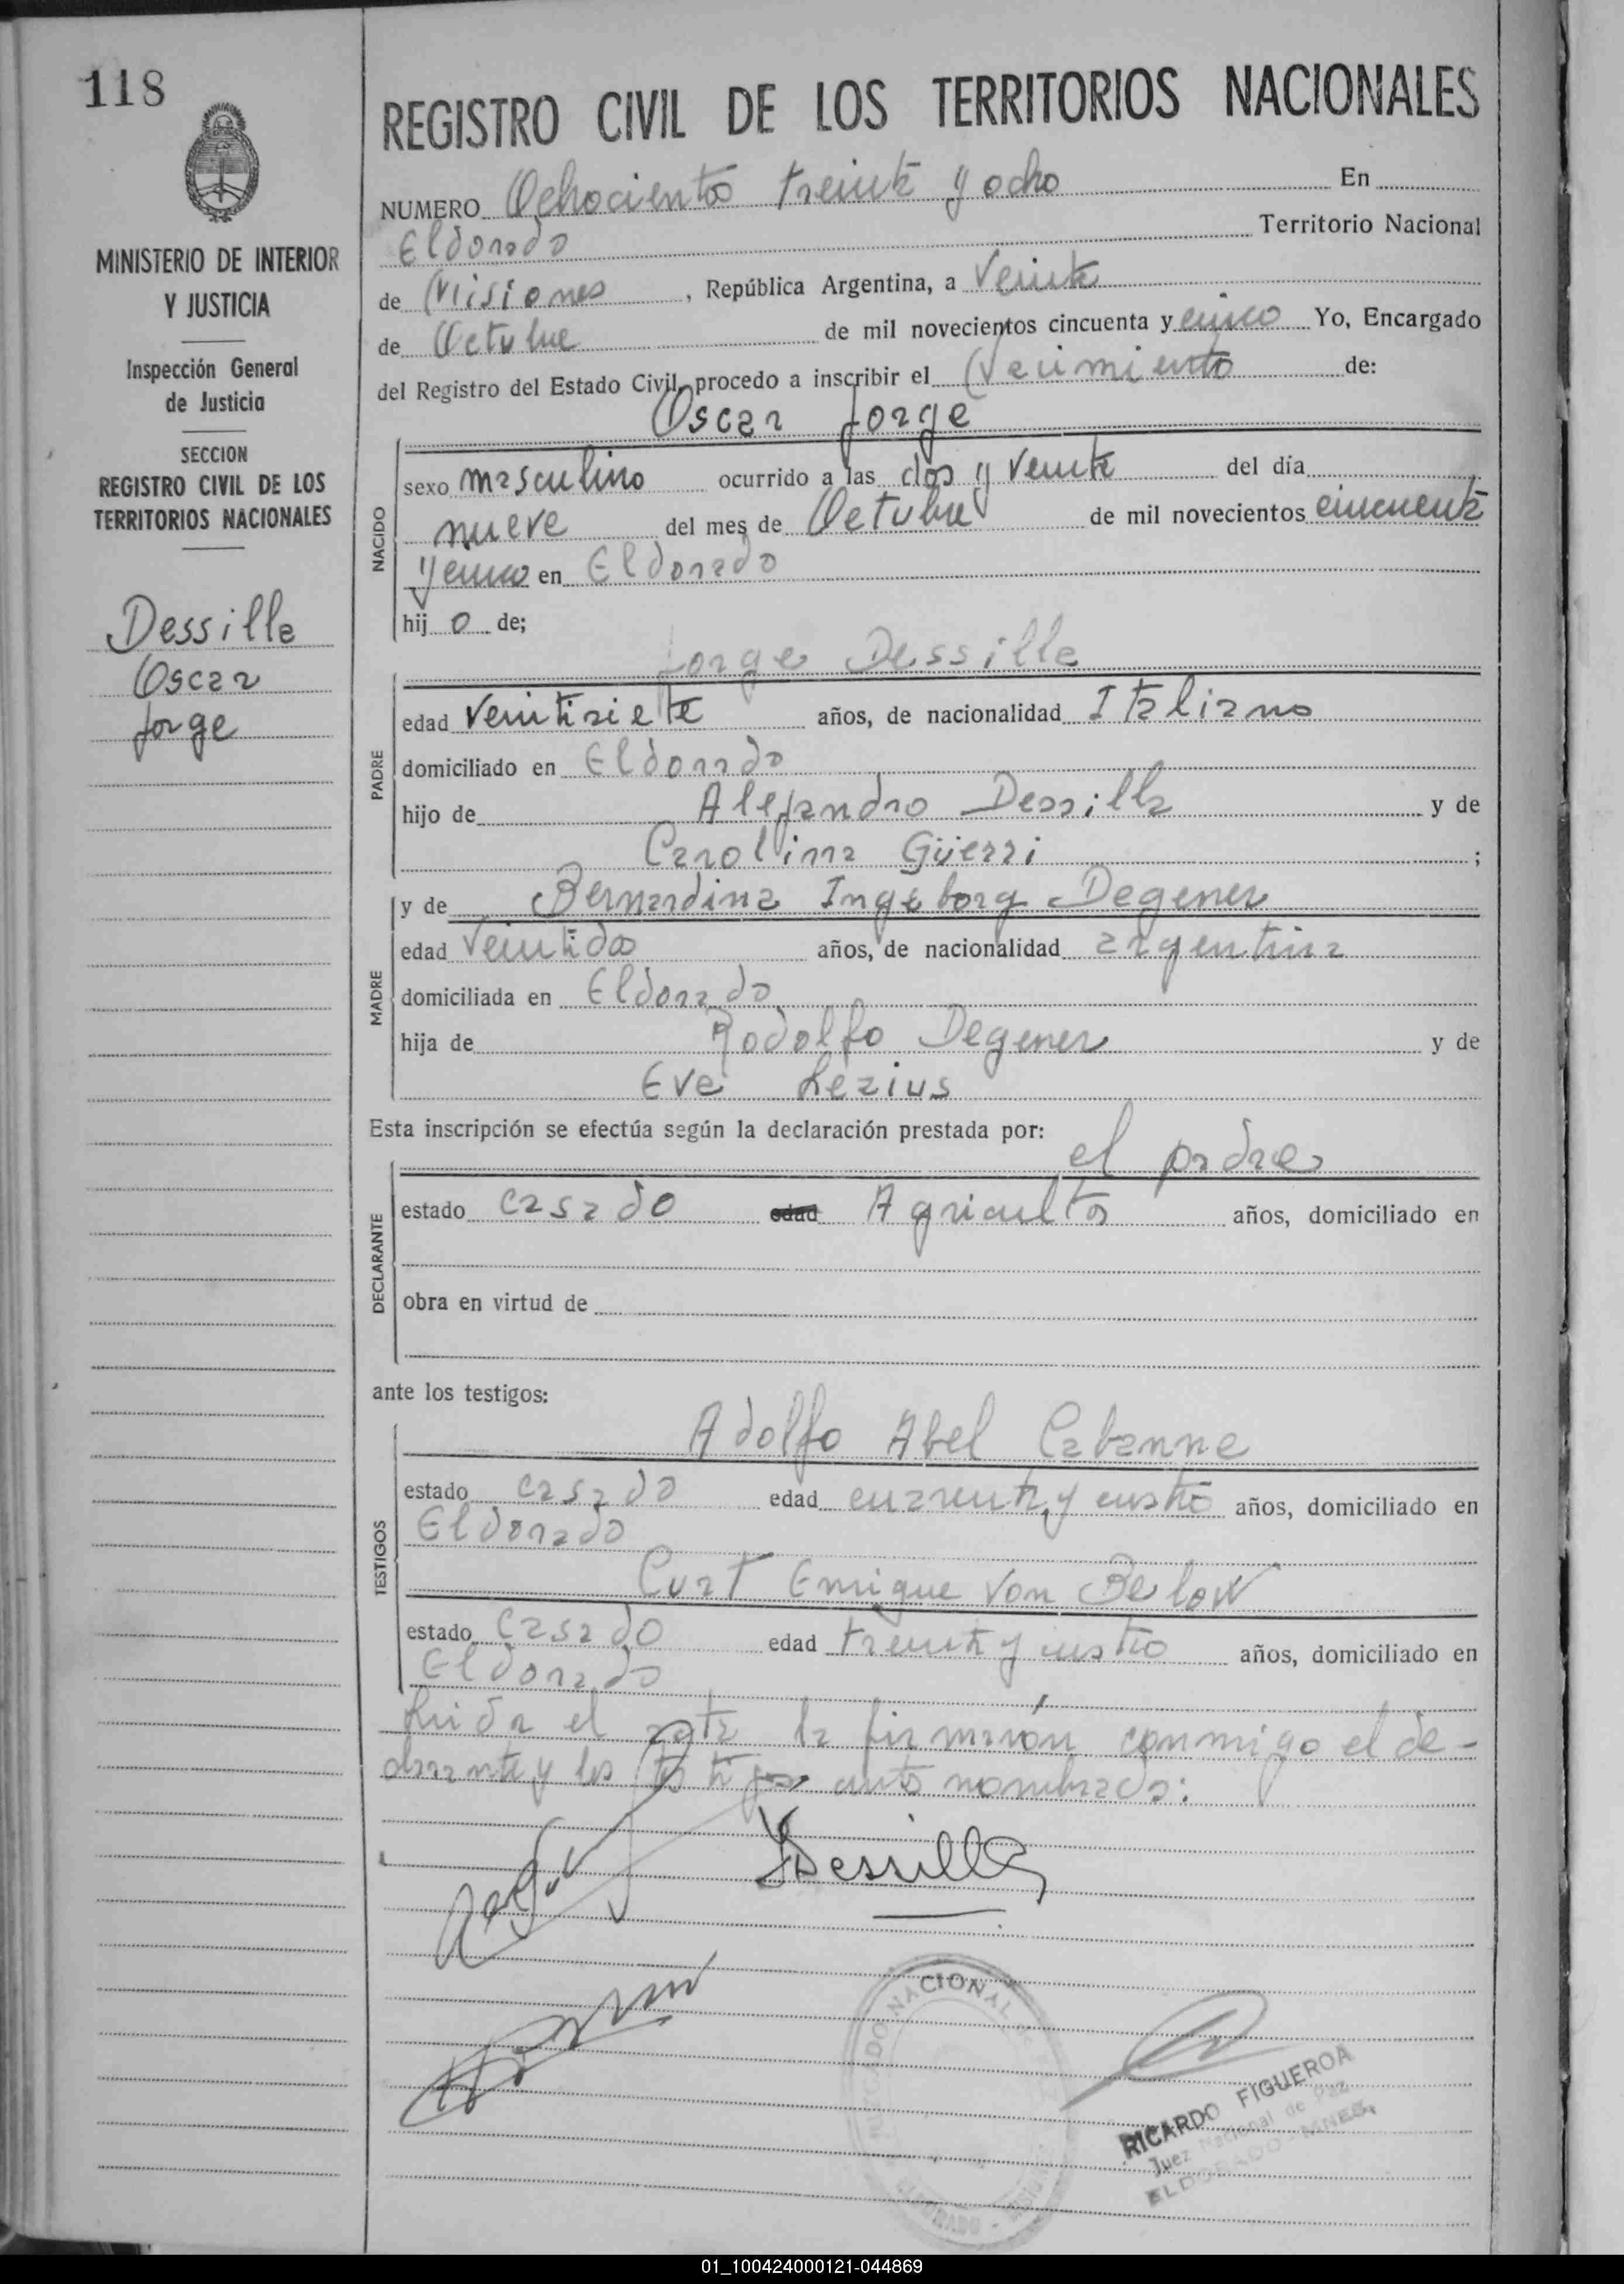 118
MINISTERIO DE INTERIOR
Y JUSTICIA
Inspección General
de Justicia
SECCION
REGISTRO CIVIL DE LOS
TERRITORIOS NACIONALES
Dessilla
Oscar
Jorge
REGISTRO CIVIL DE LOS TERRITORIOS NACIONALES
NUMERO Ochociento treinta y ocho En
Eldorado Territorio Nacional
de Misiones, República Argentina, a Veinte
de Octubre de mil novecientos cincuenta y cinco Yo, Encargado
del Registro del Estado Civil, procedo a inscribir el Nacimiento de:
Oscar Jorge
NACIDO
sexo masculino ocurrido a las dos y veinte del día
nueve del mes de Octubre de mil novecientos cincuenta
y cinco en Eldorado
hij o de;
Jorge Dessilla
PADRE
edad veintisiete años, de nacionalidad Italiano
domiciliado en Eldorado
hijo de Alejandro Dessilla y de
Carolina Güerri ;
MADRE
y de Bernardina Ingeborg Degener
edad veintidos años, de nacionalidad argentina
domiciliada en Eldorado
hija de Rodolfo Degener y de
Eva Lezius
Esta inscripción se efectúa según la declaración prestada por:
el padre
DECLARANTE
estado casado edad Agricultor años, domiciliado en
obra en virtud de
ante los testigos:
Adolfo Abel Cabanne
TESTIGOS
estado casado edad cuarenta y cuatro años, domiciliado en
Eldorado
Curt Enrique Von Below
estado casado edad treinta y cuatro años, domiciliado en
Eldorado
Leida el acta la firmaron conmigo el de-
clarante y los testigos antes nombrados:
Dessilla
NACIONAL
RICARDO FIGUEROA
Juez Nacional de Paz
ELDORADO - MNES.
01_100424000121-044869